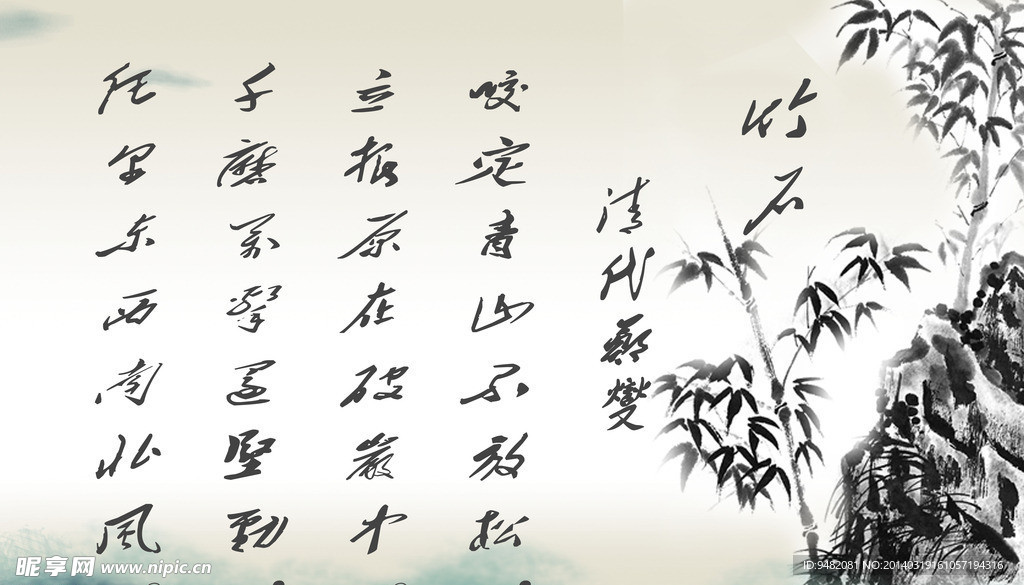 竹石
清代鄭燮
咬定青山不放松
立根原在破巖中
千磨萬擊還堅勁
任爾東西南北風
昵享网 www.nipic.cn
ID:9482081 NO:20140319161057194316